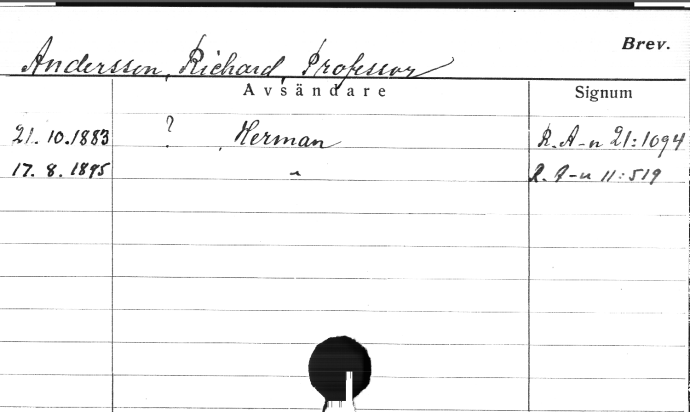 Brev.
Andersson, Richard, Professor
Avsändare Signum
21.10.1883 ? Herman R.A-n 21:1094
17.8.1895 " R.A-n 11:519